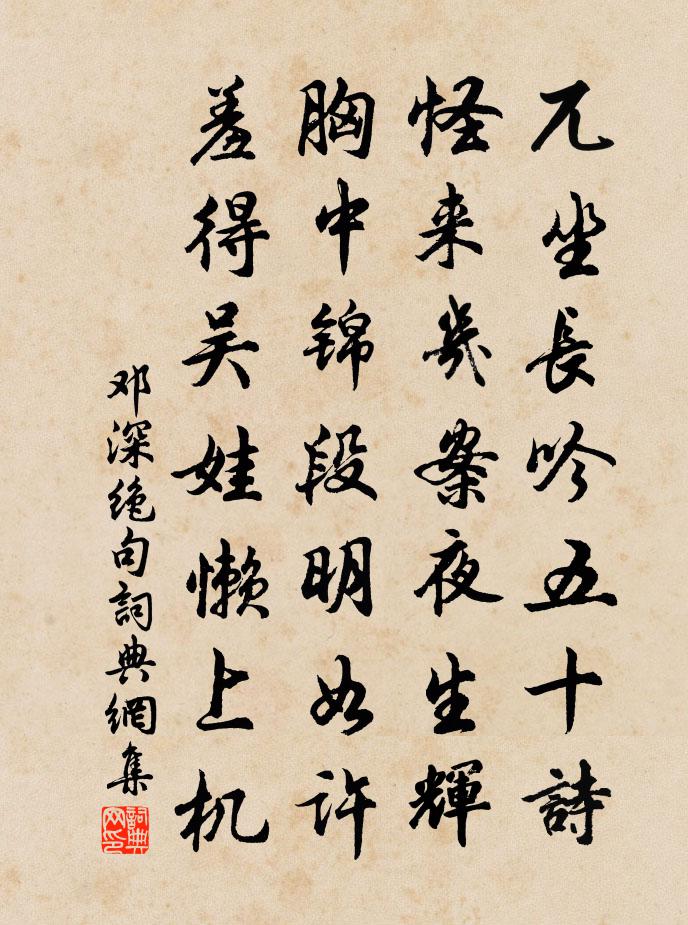 兀坐長吟五十詩
怪来幾案夜生輝
胸中锦段明如許
羞得吴娃懒上机
邓深絶句詞典網集
詞典网印